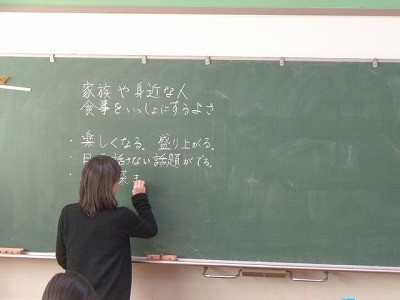 家族や身近な人
食事をいっしょにするよさ
・楽しくなる。盛り上がる。
・日 話さない話題がでる。
・